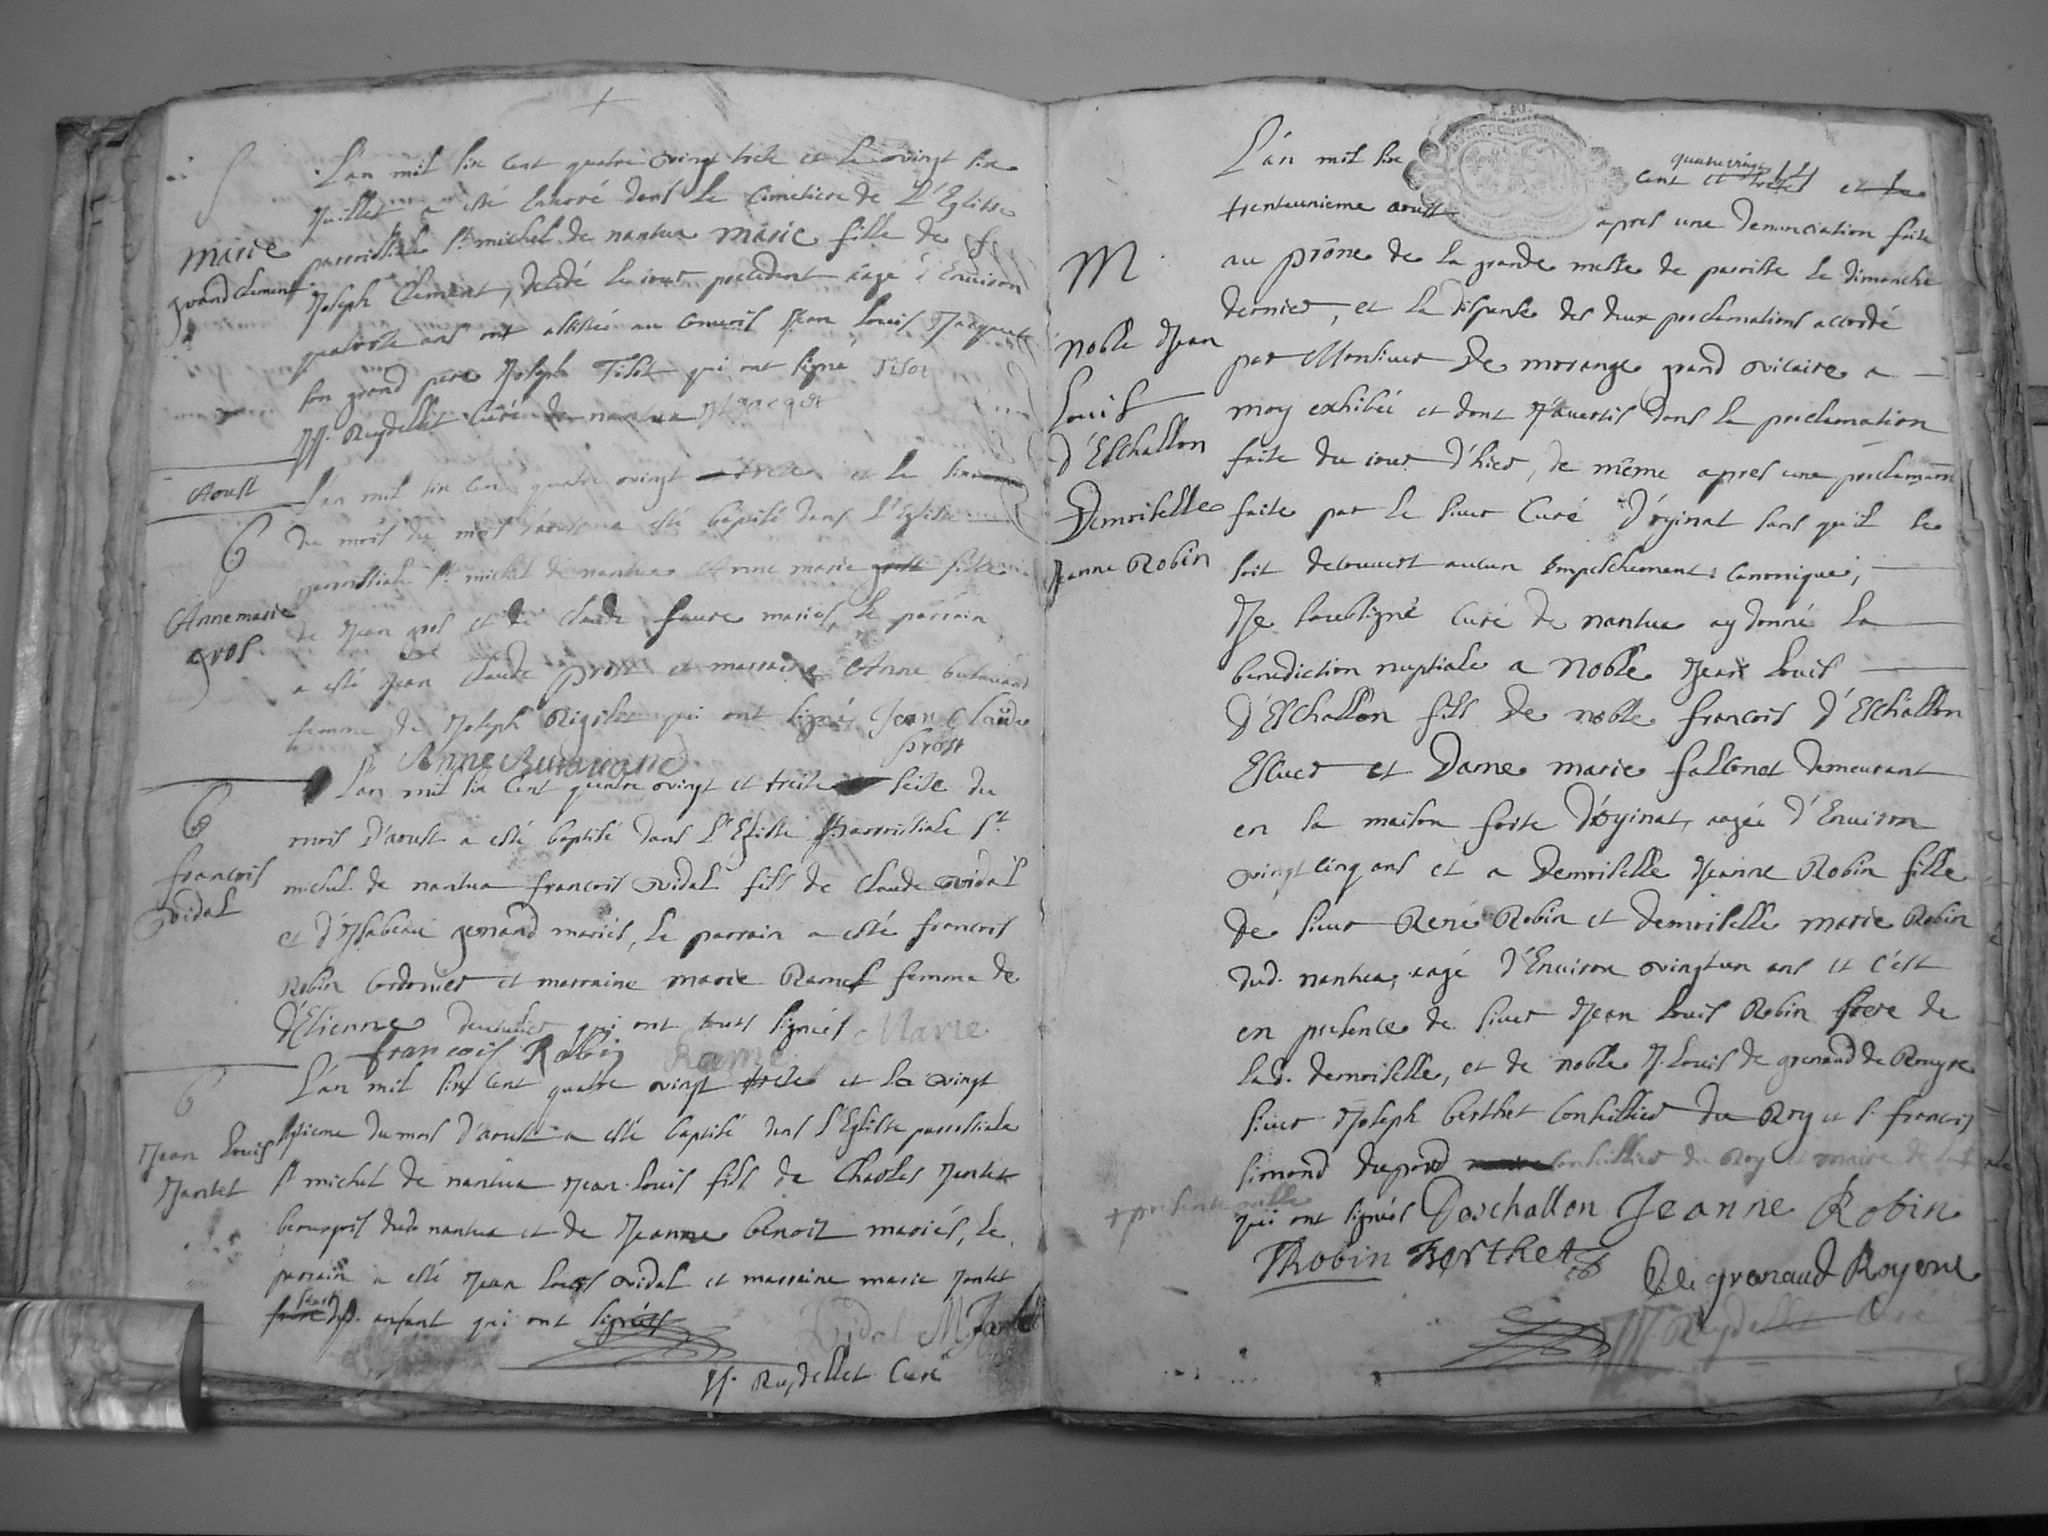 S
Marie
grand Clement
L'an mil six cent quatre vingt treze et le vingt six
Juillet a esté enterré dans le Cimetiere de L'Eglise
parroissial St michel de nantua Marie fille de f
Joseph Clement, decedé le jour precedent aagé d'Environ
quatorze ans ont assisté au convois Jean Louis Jacquet
son grand pere Joseph Tisot qui ont signe Tisot
Reydellet Curé de nantua Jacquet
Aoust
B
Anne marie
gros
L'an mil six cent quatre vingt treze et le
du mois du mois d'aoust a esté baptisé dans L'Eglise
parroissiale St michel de nantua Anne marie fille
de Jean gros et de Claude faure mariés, le parrain
a esté Jean Claude prost et marraine Anne
femme de Joseph qui ont signés Jean Claude
prost
Anne
B
francois
vidal
L'an mil six cent quatre vingt et treize seize du
mois D'aoust a esté baptisé dans L'Eglise Parroissiale St
michel de nantua francois vidal fils de Claude vidal
et d'Isabeau genand mariés, Le parrain a esté francois
Robin Cordonier et marraine marie Ramel femme de
d'Etienne qui ont touts signés Marie
francois Robin Ramel
B
Jean Louis
Jantet
L'an mil six cent quatre vingt treze et le vingt
septieme du mois d'aoust a esté baptisé dans l'Eglise parroissiale
St michel de nantua Jean Louis fils de Charles Jantet
bourgois dud. nantua et de Jeanne benoit mariés, le
parrain a esté Jean Louis vidal et marraine marie Jantet
soeur dud. enfant qui ont signés
Vidal M Jantet
Reydellet Curé
M
noble Jean
Louis
d'Eschallon
Demoiselle
Jeanne Robin
L'an mil six cent quatrevingt et treze et le
trenteunieme aoust apres une denunciation faite
au prône de la grande messe de parroisse le dimanche
dernier, et la dispense des deux proclamations accordé
par Monsieur de morange grand vicaire a
moy exhibéé et dont J'auertis dans la proclamation
faite du jour d'hier, de même apres une proclamaon
faite par le sieur Curé d'oyinat sans qu'il se
soit decouuert aucun Empeschement Canonique,
Je soubsigné Curé de nantua ay donné la
benediction nuptiale a Noble Jean Louis
d'Eschallon fils de noble francois d'Eschallon
Escuer et Dame marie fallonet demeurant
en la maison forte d'oyinat, aagéé d'Enuiron
vingt cinq ans et a Demoiselle Jeanne Robin fille
de sieur René Robin et demoiselle marie Robin
dud. nantua, aagé d'Enuiron vingtun ans et c'est
en presence de sieur Jean Louis Robin frere de
lad. demoiselle, et de noble J. Louis de grenaud de Rougre
sieur Joseph berthet Conseillier du Roy et S. francois
simond dupord Conseillier du Roy et maire de la
+ presente ville
qui ont signés Deschallon Jeanne Robin
JRobin Berthet
De grenaud Royene
Reydellet Curé